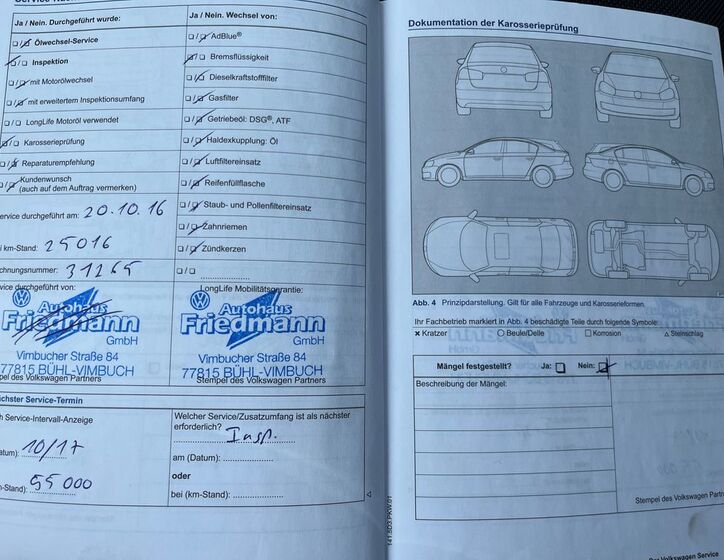 Ja / Nein. Durchgeführt wurde:
Ölwechsel-Service
Inspektion
mit Motorölwechsel
mit erweitertem Inspektionsumfang
LongLife Motoröl verwendet
Karosserieprüfung
Reparaturempfehlung
Kundenwunsch
(auch auf dem Auftrag vermerken)
ervice durchgeführt am: 20.10.16
km-Stand: 25016
chnungsnummer: 31265
ce durchgeführt von:
Autohaus
Friedmann
GmbH
Vimbucher Straße 84
77815 BÜHL-VIMBUCH
pel des Volkswagen Partners
Ja / Nein. Wechsel von:
AdBlue®
Bremsflüssigkeit
Dieselkraftstofffilter
Gasfilter
Getriebeöl: DSG®, ATF
Haldexkupplung: Öl
Luftfiltereinsatz
Reifenfüllflasche
Staub- und Pollenfiltereinsatz
Zahnriemen
Zündkerzen
LongLife Mobilitätsgarantie:
Autohaus
Friedmann
GmbH
Vimbucher Straße 84
77815 BÜHL-VIMBUCH
Stempel des Volkswagen Partners
chster Service-Termin
h Service-Intervall-Anzeige
atum): 10/17
m-Stand): 55 000
Welcher Service/Zusatzumfang ist als nächster
erforderlich?
Insp.
am (Datum):
oder
bei (km-Stand):
141.5D3.PKW.01
Dokumentation der Karosserieprüfung
Abb. 4 Prinzipdarstellung. Gilt für alle Fahrzeuge und Karosserieformen.
Ihr Fachbetrieb markiert in Abb. 4 beschädigte Teile durch folgende Symbole:
× Kratzer ○ Beule/Delle □ Korrosion △ Steinschlag
Mängel festgestellt? Ja: Nein:
Beschreibung der Mängel:
Stempel des Volkswagen Partn
er Volkswagen Service